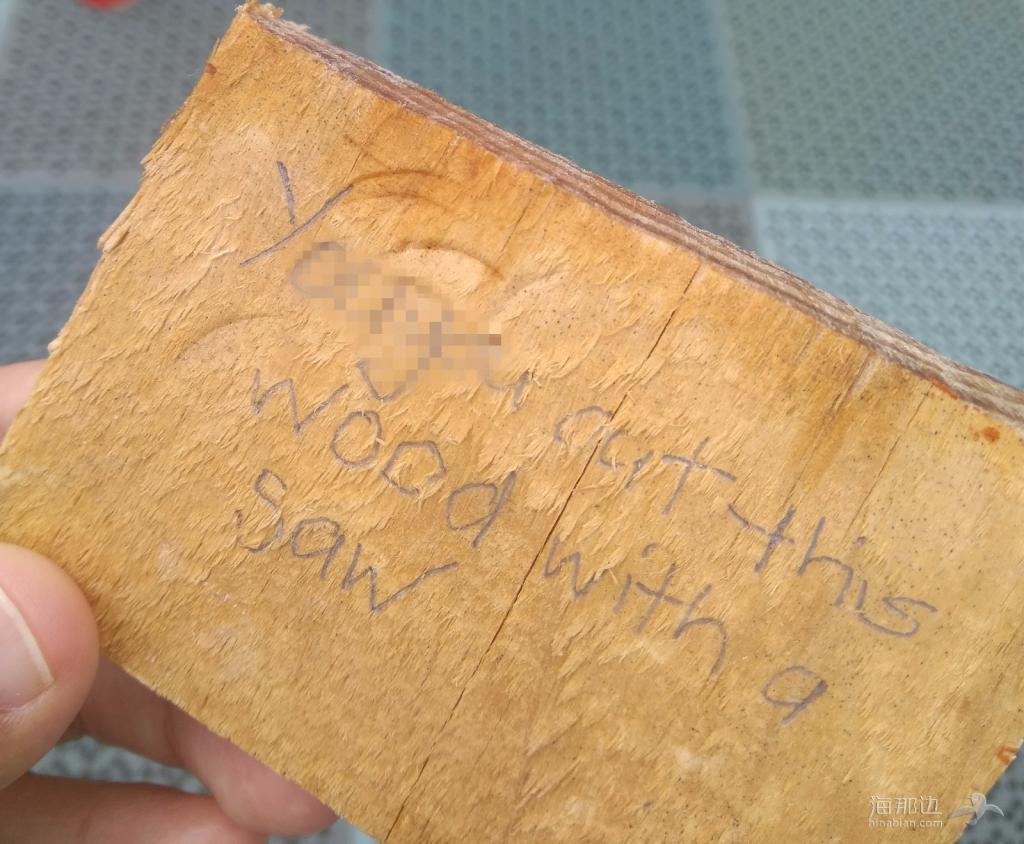 Y
cut this
wood with a
saw
海那边
hinabian.com